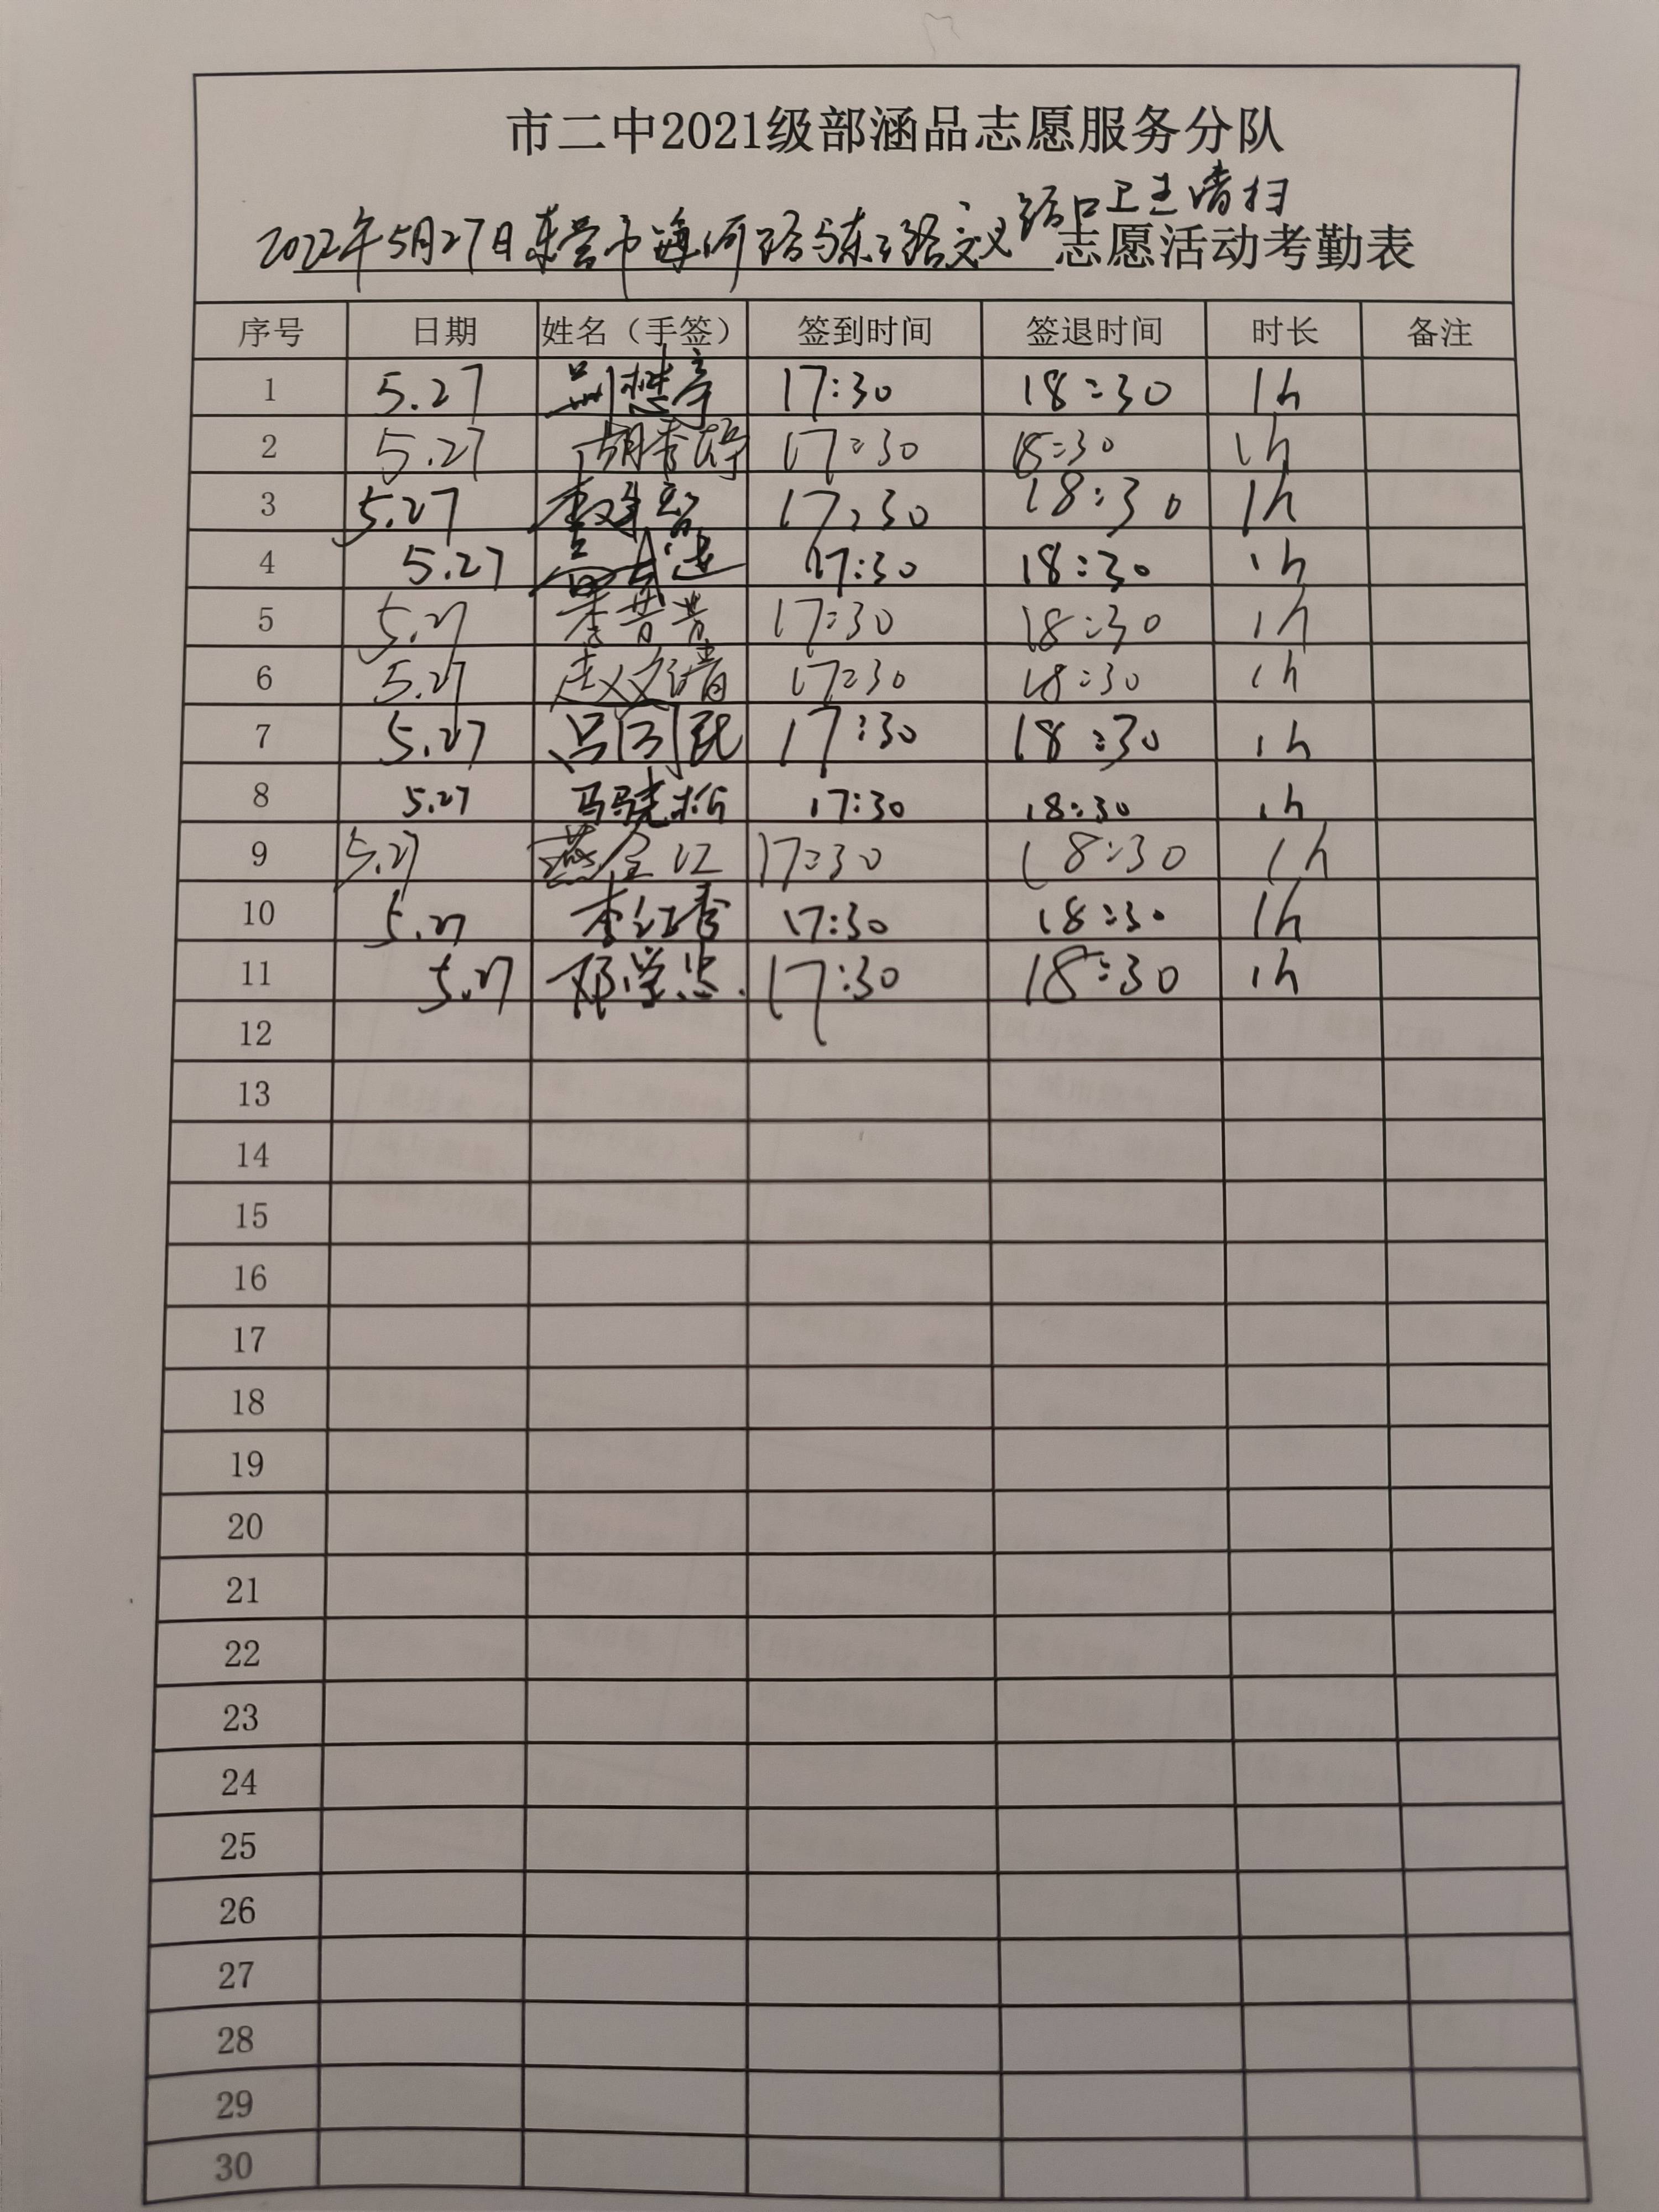 市二中2021级部涵品志愿服务分队
路口卫生清扫
2022年5月27日东营市海河路与东三路交叉 志愿活动考勤表
序号 日期 姓名（手签） 签到时间 签退时间 时长 备注
1 5.27 17:30 18:30 1h
2 5.27 胡秀婷 17:30 18:30 1h
3 5.27 17:30 18:30 1h
4 5.27 17:30 18:30 1h
5 5.27 17:30 18:30 1h
6 5.27 赵文清 17:30 18:30 1h
7 5.27 17:30 18:30 1h
8 5.27 马晓彬 17:30 18:30 1h
9 5.27 燕全江 17:30 18:30 1h
10 5.27 李红秀 17:30 18:30 1h
11 5.27 邓学忠 17:30 18:30 1h
12
13
14
15
16
17
18
19
20
21
22
23
24
25
26
27
28
29
30